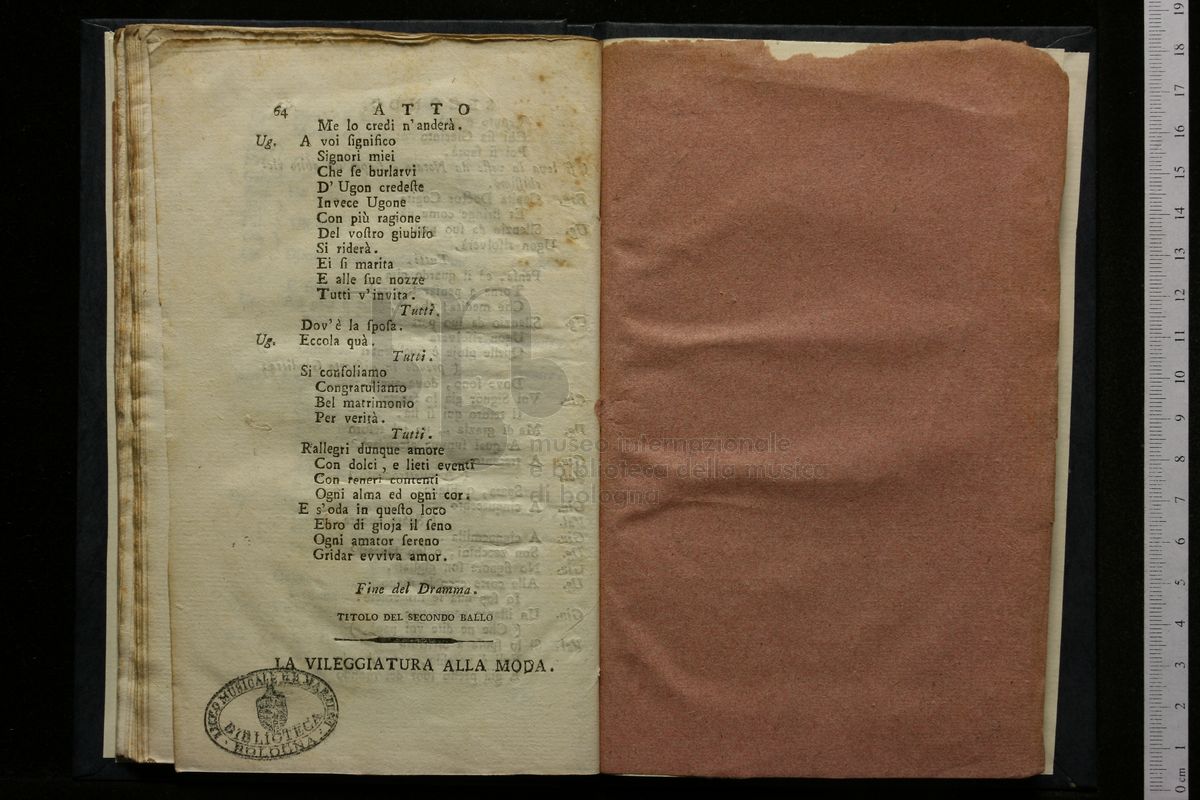 64 ATTO
Me lo credi n'anderà.
Ug. A voi ſignifico
Signori miei
Che ſe burlarvi
D' Ugon credeſte
Invece Ugone
Con più ragione
Del voſtro giubilo
Si riderà.
Ei ſi marita
E alle ſue nozze
Tutti v'invita.
Tutti.
Dov'è la ſpoſa.
Ug. Eccola quà.
Tutti.
Si conſoliamo
Congratuliamo
Bel matrimonio
Per verità.
Tutti.
Rallegri dunque amore
Con dolci, e lieti eventi
Con teneri contenti
Ogni alma ed ogni cor.
E s'oda in queſto loco
Ebro di gioja il ſeno
Ogni amator ſereno
Gridar evviva amor.
Fine del Dramma.
TITOLO DEL SECONDO BALLO
LA VILEGGIATURA ALLA MODA.
LICEO MUSICALE
BIBLIOTECA
BOLOGNA
museo internazionale
e biblioteca della musica
di bologna
0 cm 1 2 3 4 5 6 7 8 9 10 11 12 13 14 15 16 17 18 19